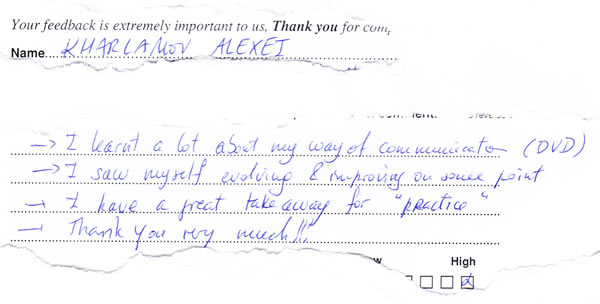 Your feedback is extremely important to us, Thank you for com
Name....KHARLAMOV ALEXEI
-> I learnt a lot about my way of communication (DVD)
-> I saw myself evolving & improving on some point
-> I have a great take away for "practice"
-> Thank you very much!!!
High